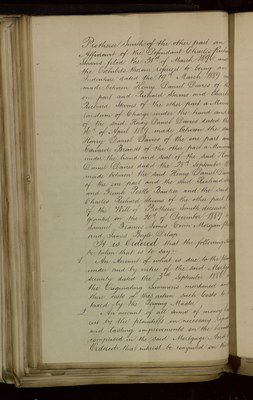 Prothero Smith of the other part an
Affidavit of the Defendant Charles Richard
Strand filed the 20th of March 1890 and
the Exhibits therein referred to being an
Indenture dated the 19th March 1889
made between Henry Daniel Davies of the
one part and Richard Strand and Charles
Richard Strand of the other part a Memo
randum of Charge under the hand and
of the said Henry Daniel Davies dated the
16th of April 1889 made between the said
Henry Daniel Davies of the one part and
Edward of the other part a Memo
under the hand and seal of the said Henry
Daniel Davies dated the 25th September
made between the said Henry Daniel Davies
of the one part and the said Richard
and Frank and the said
Charles Richard Strand of the other part
of the Will of Prothero Smith deceased
granted on the 20th of December 1889 to
Francis James Morgan
and James
It is Ordered that the following
be taken that is to say:
1 An Account of what is due to the
under and by virtue of the said Mortgage
security dated the 3rd September 1886
the Originating Summons mentioned and
their costs of this action such Costs to
taxed by the Taxing Master
2 An account of all sums of money
out by the plaintiffs in necessary
and lasting improvements on the
comprised in the said Mortgage And
Ordered that instead be computed on the